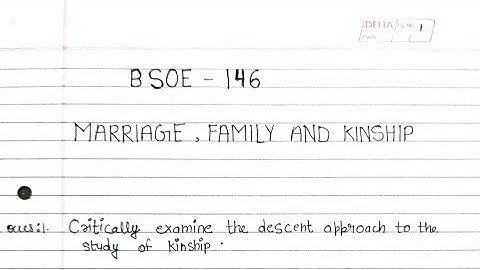 DELTA Pg No. 1
Date / /
BSOE - 146
MARRIAGE, FAMILY AND KINSHIP
Ques:1. Critically examine the descent approach to the
study of kinship.